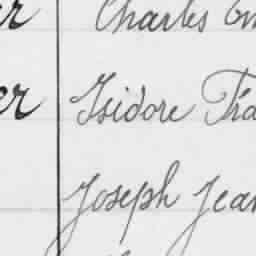 er Charles Em
er Isidore Tra
Joseph Jean